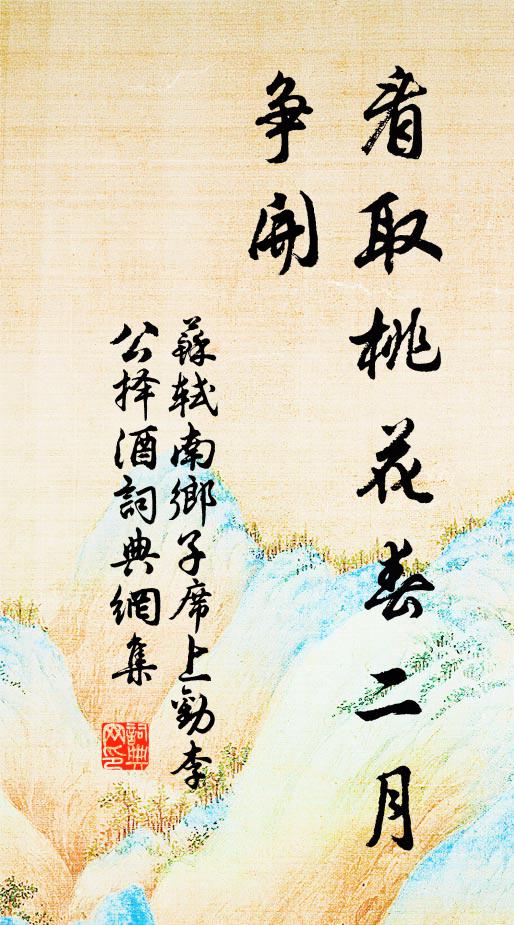 看取桃花春二月
争開
蘇軾南鄉子席上勸李
公择酒詞典網集
詞典
网印